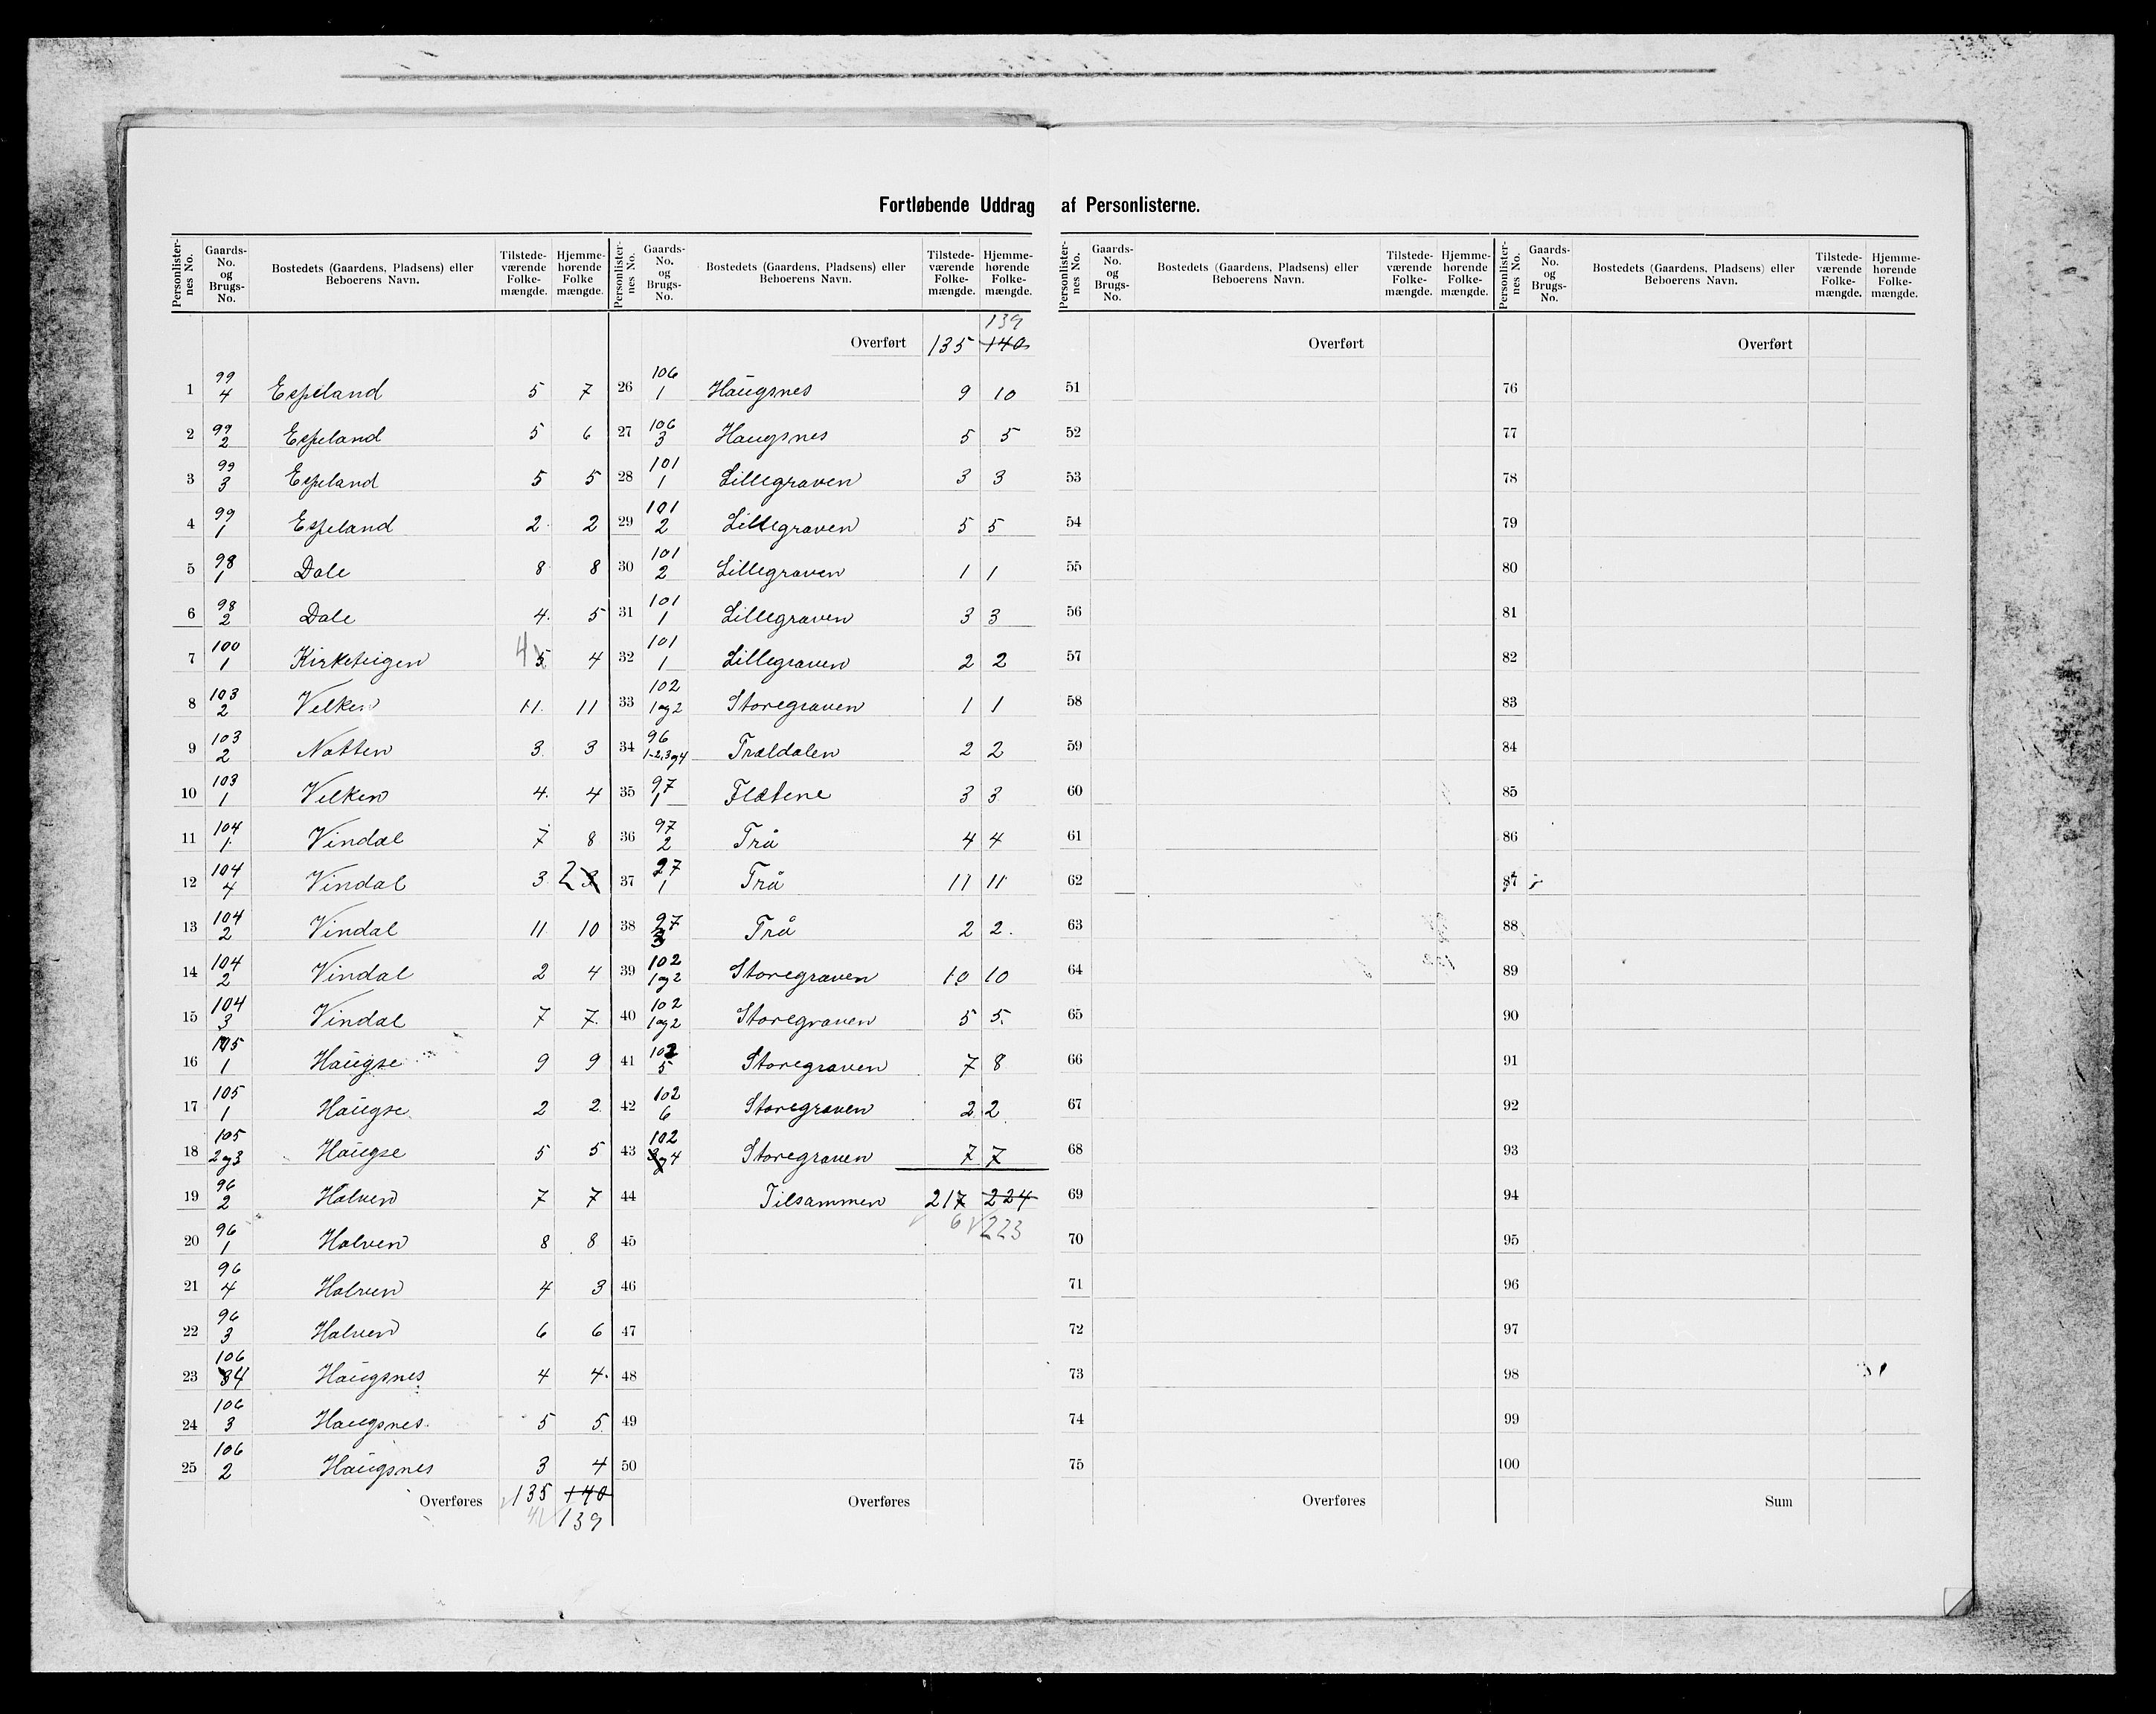 Fortløbende Uddrag af Personlisterne.
Personlister-nes No. Gaards-No. og Brugs-No. Bostedets (Gaardens, Pladsens) eller Beboerens Navn. Tilstede-værende Folke-mængde. Hjemme-hørende Folke mængde.
Personlister-nes No. Gaards-No. og Brugs-No. Bostedets (Gaardens, Pladsens) eller Beboerens Navn. Tilstede-værende Folke-mængde. Hjemme-hørende Folke-mængde.
Personlister-nes No. Gaards-No. og Brugs-No. Bostedets (Gaardens, Pladsens) eller Beboerens Navn. Tilstede-værende Folke-mængde. Hjemme-hørende Folke-mængde.
Personlister-nes No. Gaards-No. og Brugs-No. Bostedets (Gaardens, Pladsens) eller Beboerens Navn. Tilstede-værende Folke-mængde. Hjemme-hørende Folke-mængde.
1 99 4 Espeland 5 7
2 99 2 Espeland 5 6
3 99 3 Espeland 5 5
4 99 1 Espeland 2 2
5 98 1 Dale 8 8
6 98 2 Dale 4 5
7 100 1 Kirketeigen 4 5 4
8 103 2 Velken 11 11
9 103 2 Natten 3 3
10 103 1 Velken 4 4
11 104 1 Vindal 7 8
12 104 4 Vindal 3 2 3
13 104 2 Vindal 11 10
14 104 2 Vindal 2 4
15 104 3 Vindal 7 7
16 105 1 Haugse 9 9
17 105 1 Haugse 2 2
18 105 2 og 3 Haugse 5 5
19 96 2 Halven 7 7
20 96 1 Halven 8 8
21 96 4 Halven 4 3
22 96 3 Halven 6 6
23 106 3 4 Haugsnes 4 4
24 106 3 Haugsnes 5 5
25 106 2 Haugsnes 3 4
Overføres 135 140
4 139
139
Overført 135 140
26 106 1 Haugsnes 9 10
27 106 3 Haugsnes 5 5
28 101 1 Lillegraven 3 3
29 101 2 Lillegraven 5 5
30 101 2 Lillegraven 1 1
31 101 1 Lillegraven 3 3
32 101 1 Lillegraven 2 2
33 102 1 og 2 Storegraven 1 1
34 96 1-2, 3 og 4 Trældalen 2 2
35 97 1 Flatene 3 3
36 97 2 Trå 4 4
37 97 1 Trå 11 11
38 97 3 Trå 2 2
39 102 1 og 2 Storegraven 10 10
40 102 1 og 2 Storegraven 5 5
41 102 5 Storegraven 7 8
42 102 6 Storegraven 2 2
43 102 3 og 4 Storegraven 7 7
44 Tilsammen 217 224
6 223
45
46
47
48
49
50
Overføres
Overført
51
52
53
54
55
56
57
58
59
60
61
62
63
64
65
66
67
68
69
70
71
72
73
74
75
Overføres
Overført
76
77
78
79
80
81
82
83
84
85
86
87
88
89
90
91
92
93
94
95
96
97
98
99
100
Sum